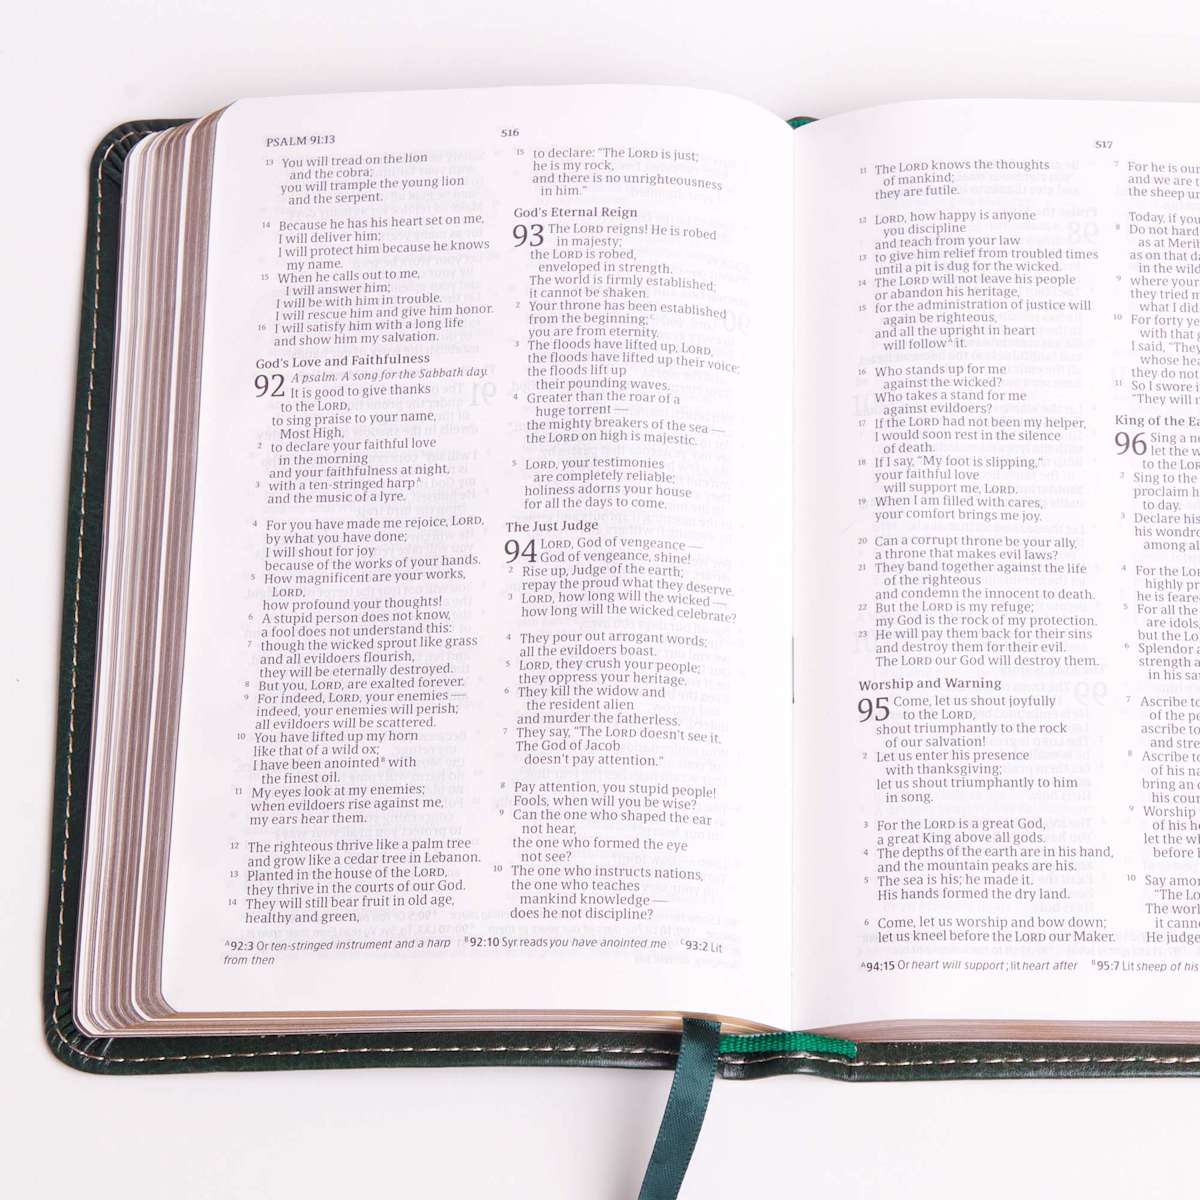 PSALM 91:13
516
13 You will tread on the lion
and the cobra;
you will trample the young lion
and the serpent.
14 Because he has his heart set on me,
I will deliver him;
I will protect him because he knows
my name.
15 When he calls out to me,
I will answer him;
I will be with him in trouble.
I will rescue him and give him honor.
16 I will satisfy him with a long life
and show him my salvation.
God's Love and Faithfulness
92 A psalm. A song for the Sabbath day.
It is good to give thanks
to the LORD,
to sing praise to your name,
Most High,
2 to declare your faithful love
in the morning
and your faithfulness at night,
3 with a ten-stringed harp A
and the music of a lyre.
4 For you have made me rejoice, LORD,
by what you have done;
I will shout for joy
because of the works of your hands.
5 How magnificent are your works,
LORD,
how profound your thoughts!
6 A stupid person does not know,
a fool does not understand this:
7 though the wicked sprout like grass
and all evildoers flourish,
they will be eternally destroyed.
8 But you, LORD, are exalted forever.
9 For indeed, LORD, your enemies —
indeed, your enemies will perish;
all evildoers will be scattered.
10 You have lifted up my horn
like that of a wild ox;
I have been anointed B with
the finest oil.
11 My eyes look at my enemies;
when evildoers rise against me,
my ears hear them.
12 The righteous thrive like a palm tree
and grow like a cedar tree in Lebanon.
13 Planted in the house of the LORD,
they thrive in the courts of our God.
14 They will still bear fruit in old age,
healthy and green,
15 to declare: "The LORD is just;
he is my rock,
and there is no unrighteousness
in him."
God's Eternal Reign
93 The LORD reigns! He is robed
in majesty;
the LORD is robed,
enveloped in strength.
The world is firmly established;
it cannot be shaken.
2 Your throne has been established
from the beginning; C
you are from eternity.
3 The floods have lifted up, LORD,
the floods have lifted up their voice;
the floods lift up
their pounding waves.
4 Greater than the roar of a
huge torrent —
the mighty breakers of the sea —
the LORD on high is majestic.
5 LORD, your testimonies
are completely reliable;
holiness adorns your house
for all the days to come.
The Just Judge
94 LORD, God of vengeance —
God of vengeance, shine!
2 Rise up, Judge of the earth;
repay the proud what they deserve.
3 LORD, how long will the wicked —
how long will the wicked celebrate?
4 They pour out arrogant words;
all the evildoers boast.
5 LORD, they crush your people;
they oppress your heritage.
6 They kill the widow and
the resident alien
and murder the fatherless.
7 They say, "The LORD doesn't see it.
The God of Jacob
doesn't pay attention."
8 Pay attention, you stupid people!
Fools, when will you be wise?
9 Can the one who shaped the ear
not hear,
the one who formed the eye
not see?
10 The one who instructs nations,
the one who teaches
mankind knowledge —
does he not discipline?
A 92:3 Or ten-stringed instrument and a harp B 92:10 Syr reads you have anointed me C 93:2 Lit
from then
517
11 The LORD knows the thoughts
of mankind;
they are futile.
12 LORD, how happy is anyone
you discipline
and teach from your law
13 to give him relief from troubled times
until a pit is dug for the wicked.
14 The LORD will not leave his people
or abandon his heritage,
15 for the administration of justice will
again be righteous,
and all the upright in heart
will follow A it.
16 Who stands up for me
against the wicked?
Who takes a stand for me
against evildoers?
17 If the LORD had not been my helper,
I would soon rest in the silence
of death.
18 If I say, "My foot is slipping,"
your faithful love
will support me, LORD.
19 When I am filled with cares,
your comfort brings me joy.
20 Can a corrupt throne be your ally,
a throne that makes evil laws?
21 They band together against the life
of the righteous
and condemn the innocent to death.
22 But the LORD is my refuge;
my God is the rock of my protection.
23 He will pay them back for their sins
and destroy them for their evil.
The LORD our God will destroy them.
Worship and Warning
95 Come, let us shout joyfully
to the LORD,
shout triumphantly to the rock
of our salvation!
2 Let us enter his presence
with thanksgiving;
let us shout triumphantly to him
in song.
3 For the LORD is a great God,
a great King above all gods.
4 The depths of the earth are in his hand,
and the mountain peaks are his.
5 The sea is his; he made it.
His hands formed the dry land.
6 Come, let us worship and bow down;
let us kneel before the LORD our Maker.
7 For he is our
and we are t
the sheep un
Today, if you
8 Do not hard
as at Merib
as on that da
in the wild
9 where your
they tried m
what I did
10 For forty ye
with that g
I said, "They
whose hea
they do not
11 So I swore i
"They will n
King of the Ea
96 Sing a n
let the w
to the Lo
2 Sing to the
proclaim h
to day.
3 Declare his
his wondro
among al
4 For the LO
highly pr
he is feare
5 For all the
are idols,
but the Lo
6 Splendor a
strength a
in his sa
7 Ascribe to
of the po
ascribe to
and stre
8 Ascribe to
of his n
bring an o
his cou
9 Worship
of his h
let the wh
before l
10 Say amo
"The Lo
The worl
it canno
He judge
A 94:15 Or heart will support; lit heart after B 95:7 Lit sheep of his